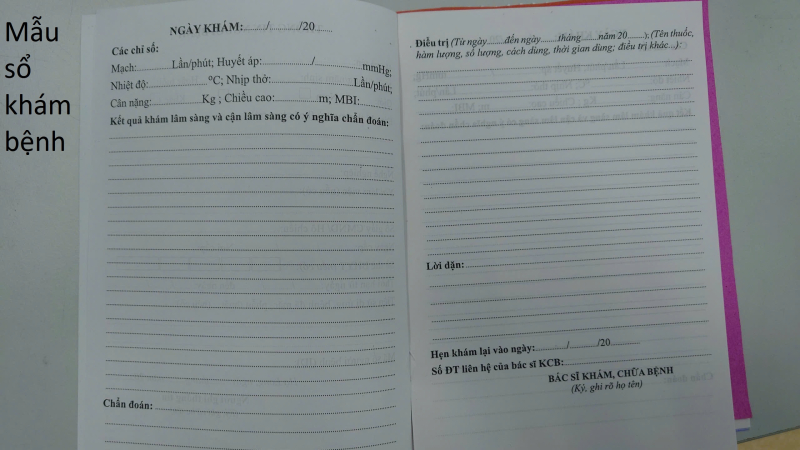 Mẫu
sổ
khám
bệnh
NGÀY KHÁM:......./......./20.......
Các chỉ số:
Mạch:............Lần/phút; Huyết áp:................/................mmHg;
Nhiệt độ:................°C; Nhịp thở:........................Lần/phút;
Cân nặng:................Kg ; Chiều cao:............m; MBI:..........
Kết quả khám lâm sàng và cận lâm sàng có ý nghĩa chẩn đoán:
Chẩn đoán:
Điều trị (Từ ngày.......đến ngày.......tháng.......năm 20.......); (Tên thuốc,
hàm lượng, số lượng, cách dùng, thời gian dùng; điều trị khác...):
Lời dặn:
Hẹn khám lại vào ngày:........../........../20..........
Số ĐT liên hệ của bác sĩ KCB:
BÁC SĨ KHÁM, CHỮA BỆNH
(Ký, ghi rõ họ tên)